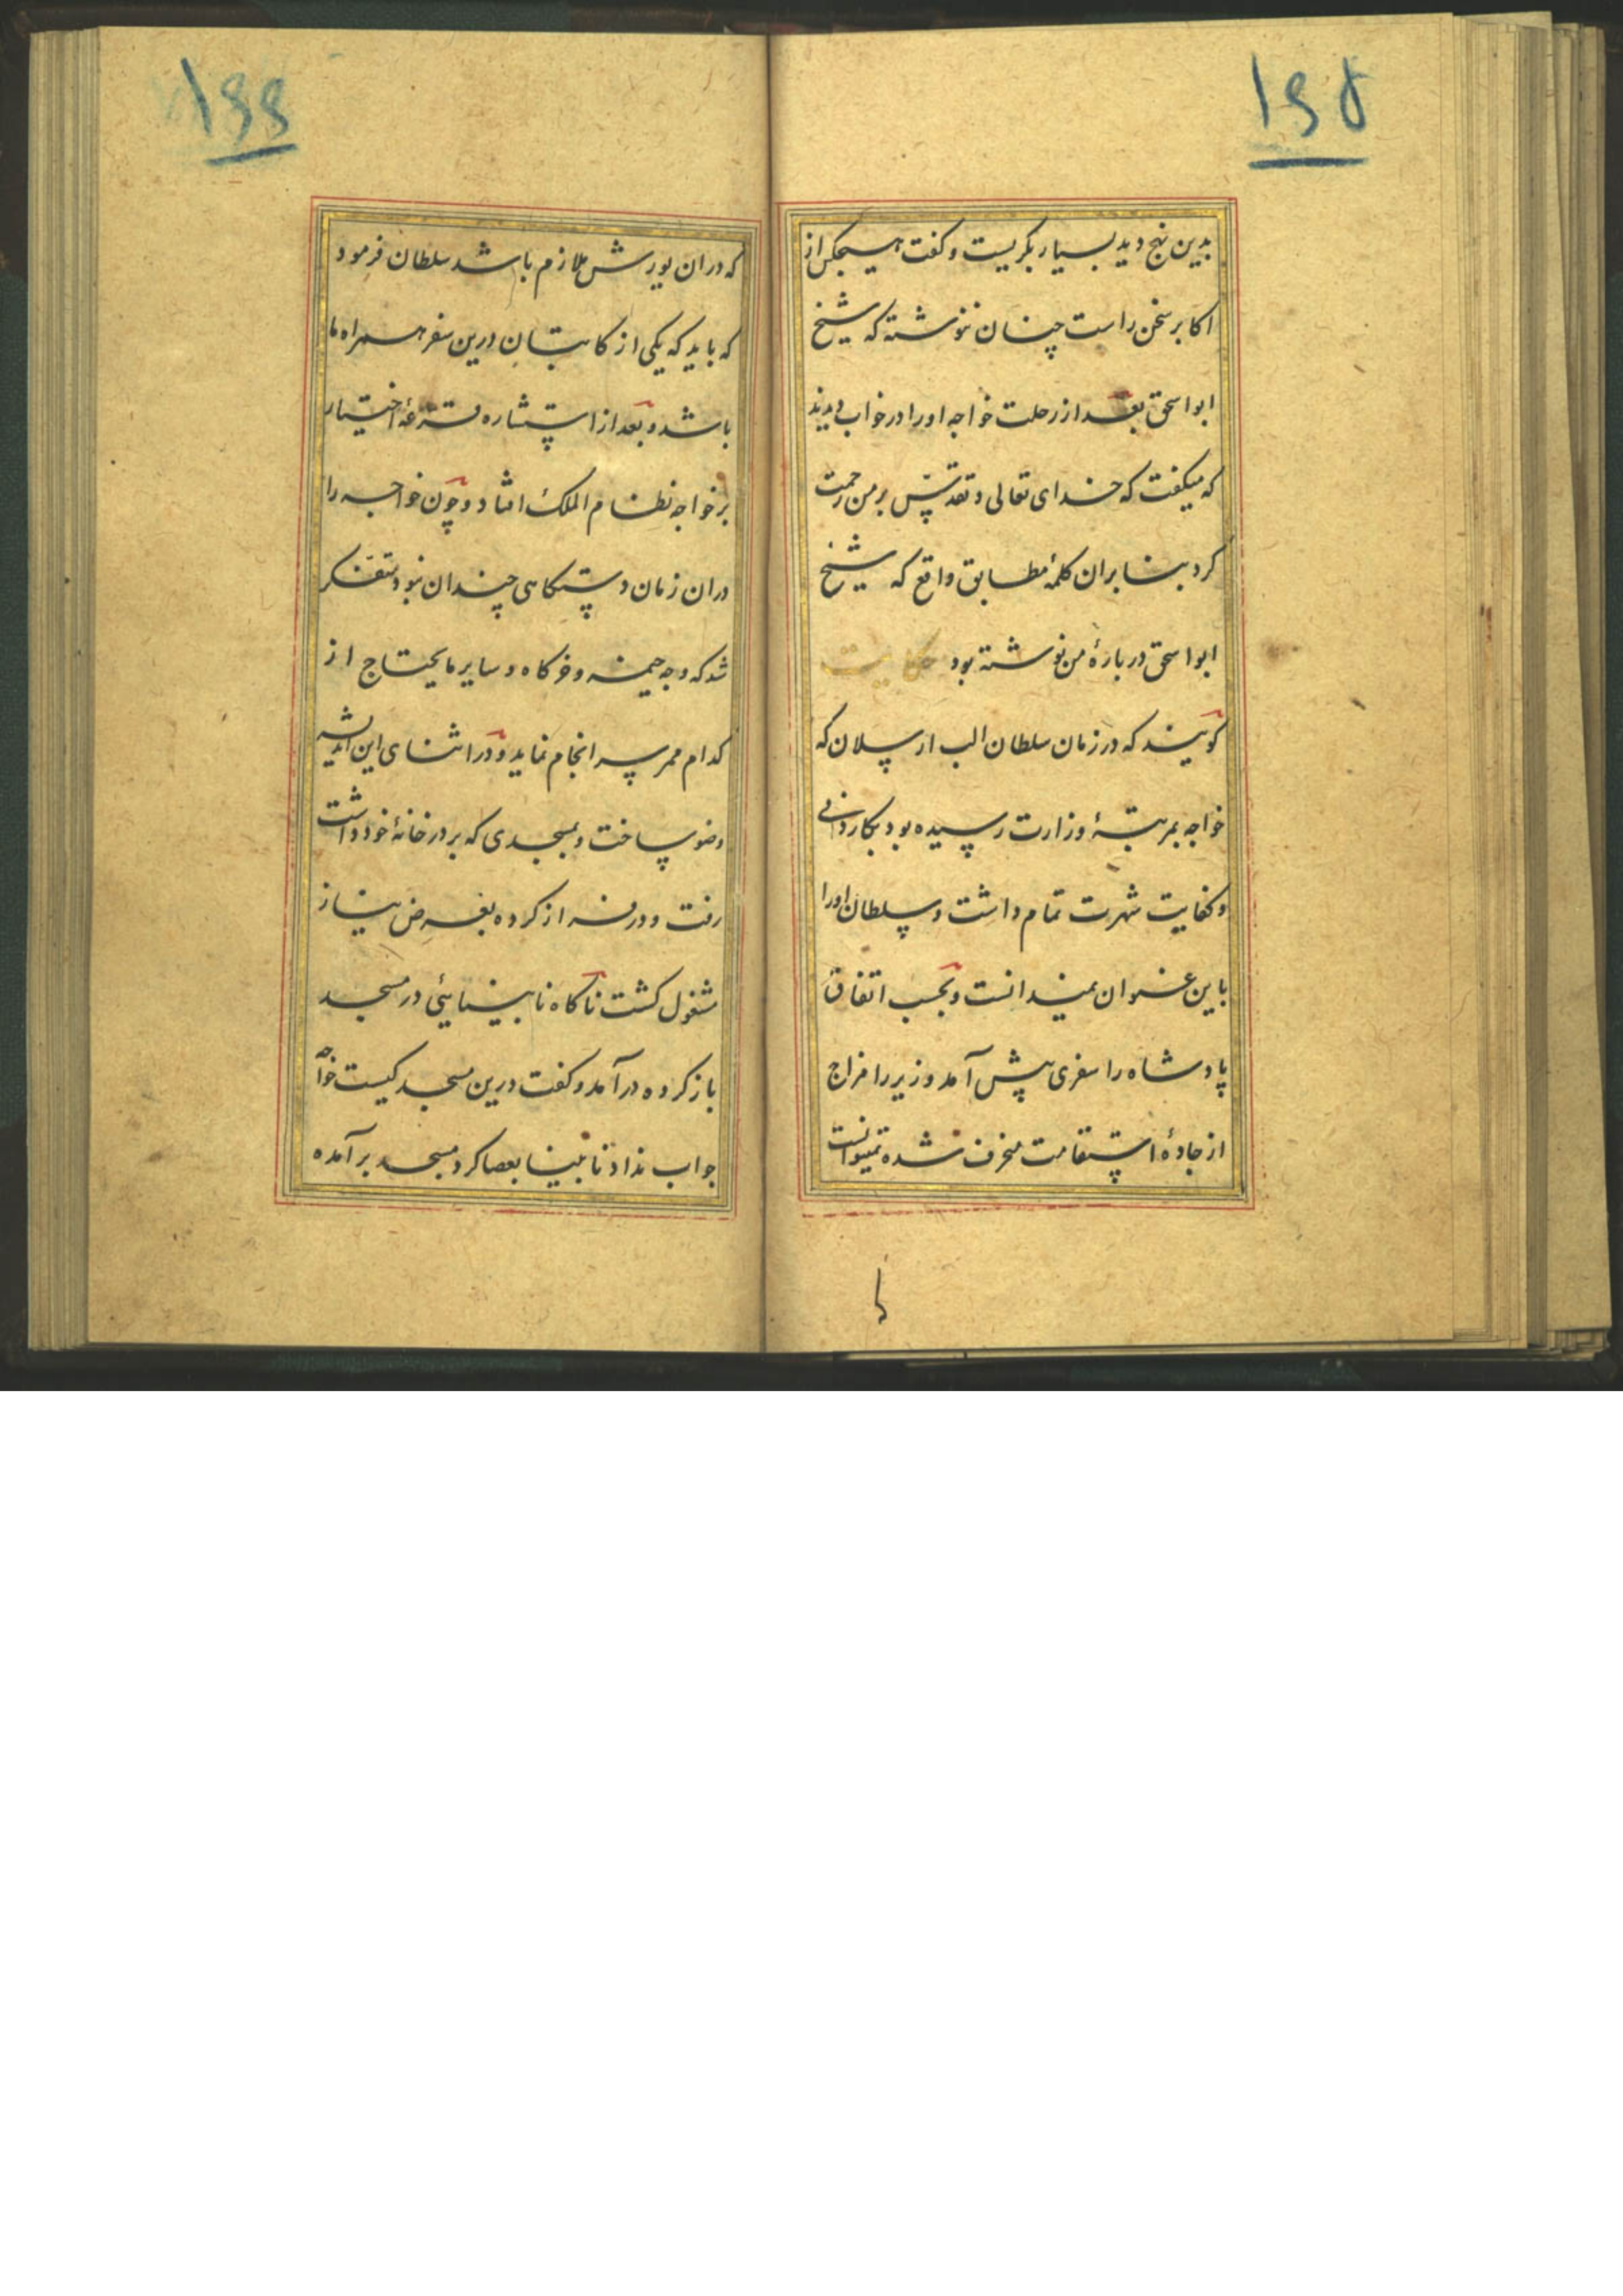 ۱۶۵
بدین نهج دید بسیار بکریست و کفت هیچکس از
اکابر سخن راست چنان ننوشته که شیخ
ابو اسحق بعد از رحلت خواجه او را در خواب دیدند
که میکفت که خدای تعالی و تقدس بر من رحمت
کرد بنا بران کلمهٔ مطابق واقع که شیخ
ابو اسحق در بارهٔ من نوشته بود حکایت
کویند که در زمان سلطان الب ارسلان که
خواجه بمرتبهٔ وزارت رسیده بود بکاردانی
و کفایت شهرت تمام داشت و سلطان او را
باین عنوان نمیدانست و بحسب اتفاق
پادشاه را سفری پیش آمد وزیر را مزاج
از جادهٔ استقامت منحرف شده نمیتوانست
۱۶۶
که دران یورش ملازم باشد سلطان فرمود
که باید که یکی از کاتبان درین سفر همراه ما
باشد و بعد از استشاره قرعهٔ اختیار
بر خواجه نظام الملک افتاد و چون خواجه را
دران زمان دستکاهی چندان نبود متفکر
شد که وجه خیمه و خرکاه و سایر مایحتاج از
کدام ممر سرانجام نماید و در اثنای این اندیشه
وضو ساخت و بمسجدی که بر در خانهٔ خود داشت
رفت و در فراز کرده بعرض نیاز
مشغول کشت ناکاه نابینایئی در مسجد
باز کرده در آمد و کفت درین مسجد کیست خواجه
جواب نداد نابینا بعصا کرد مسجد بر آمده